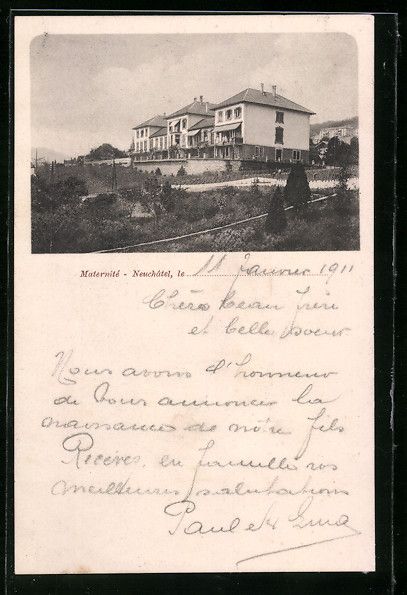 Maternité - Neuchâtel, le 11 Janvier 1911
Chères beau frère
et belle soeur
Nous avons d'honneur
de vous annoncer la
naissance de nôtre fils
Recevez en famille vos
meilleures salutations
Paul et